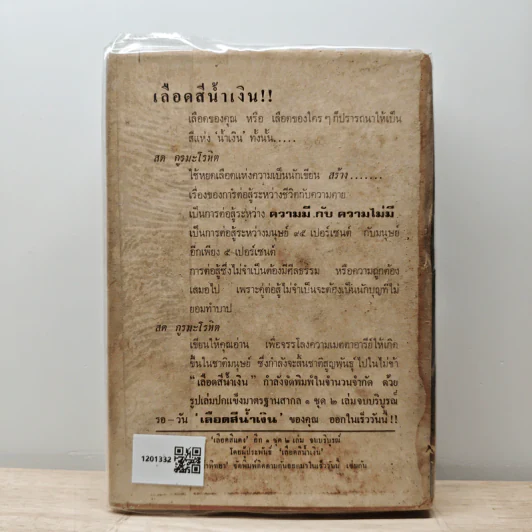 เลือดสีน้ำเงิน!!
เลือดของคุณ หรือ เลือดของใคร ๆ ก็ปรารถนาให้เป็น
สีแห่ง 'น้ำเงิน' ทั้งนั้น.....
สด กูรมะโรหิต
ใช้หยดเลือดแห่งความเป็นนักเขียน สร้าง.......
เรื่องของการต่อสู้ระหว่างชีวิตกับความตาย
เป็นการต่อสู้ระหว่าง ความมี กับ ความไม่มี
เป็นการต่อสู้ระหว่างมนุษย์ ๙๕ เปอร์เซนต์ กับมนุษย์
อีกเพียง ๕ เปอร์เซนต์
การต่อสู้ซึ่งไม่จำเป็นต้องมีศีลธรรม หรือความถูกต้อง
เสมอไป เพราะคู่ต่อสู้ไม่จำเป็นจะต้องเป็นนักบุญที่ไม่
ยอมทำบาป
สด กูรมะโรหิต
เขียนให้คุณอ่าน เพื่อจรรโลงความเมตตาอารีย์ให้เกิด
ขึ้นในชาติมนุษย์ ซึ่งกำลังจะสิ้นชาติสูญพันธุ์ไปในไม่ช้า
"เลือดสีน้ำเงิน" กำลังจัดพิมพ์ในจำนวนจำกัด ด้วย
รูปเล่มปกแข็งมาตรฐานสากล ๑ ชุด ๒ เล่มจบบริบูรณ์
รอ - วัน 'เลือดสีน้ำเงิน' ของคุณ ออกในเร็ววันนี้!!
'เลือดสีแดง' อีก ๑ ชุด ๒ เล่ม จบบริบูรณ์
โดยผู้ประพันธ์ 'เลือดสีน้ำเงิน'
จัดพิมพ์ติดตามกันออกมาในเร็ววันนี้ เช่นกัน
1201332